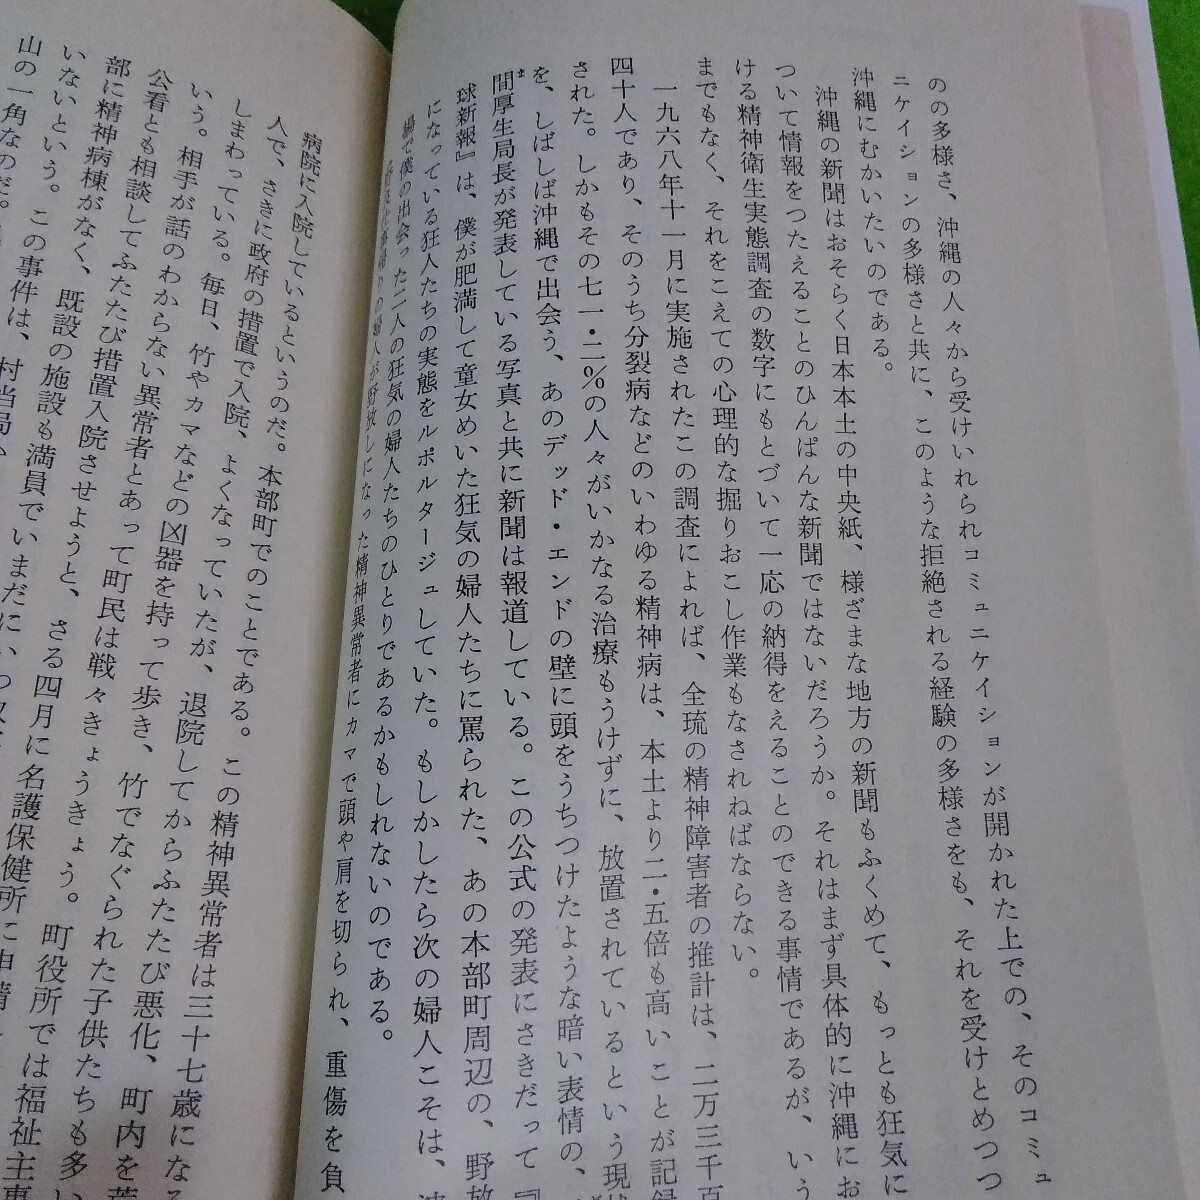 のの多様さ、沖縄の人々から受けいれられコミュニケイションが開かれた上での、そのコミュ
ニケイションの多様さと共に、このような拒絶される経験の多様さをも、それを受けとめつつ
沖縄にむかいたいのである。
沖縄の新聞はおそらく日本本土の中央紙、様ざまな地方の新聞もふくめて、もっとも狂気に
ついて情報をつたえることのひんぱんな新聞ではないだろうか。それはまず具体的に沖縄にお
ける精神衛生実態調査の数字にもとづいて一応の納得をえることのできる事情であるが、いう
までもなく、それをこえての心理的な掘りおこし作業もなされねばならない。
一九六八年十一月に実施されたこの調査によれば、全琉の精神障害者の推計は、二万三千百
四十人であり、そのうち分裂病などのいわゆる精神病は、本土より二・五倍も高いことが記録
された。しかもその七一・二%の人々がいかなる治療もうけずに、放置されているという現状
を、しばしば沖縄で出会う、あのデッド・エンドの壁に頭をうちつけたような暗い表情の、
間厚生局長が発表している写真と共に新聞は報道している。この公式の発表にさきだって『
球新報』は、僕が肥満して童女めいた狂気の婦人たちに罵られた、あの本部町周辺の、野放
になっている狂人たちの実態をルポルタージュしていた。もしかしたら次の婦人こそは、
場で僕の出会った二人の狂気の婦人たちのひとりであるかもしれないのである。
婦人が野放しになった精神異常者にカマで頭や肩を切られ、重傷を負
病院に入院しているというのだ。本部町でのことである。この精神異常者は三十七歳になる
人で、さきに政府の措置で入院、よくなっていたが、退院してからふたたび悪化、町内を荒
しまわっている。毎日、竹やカマなどの凶器を持って歩き、竹でなぐられた子供たちも多い
いう。相手が話のわからない異常者とあって町民は戦々きょうきょう。町役所では福祉主事
公看とも相談してふたたび措置入院させようと、さる四月に名護保健所に申請
部に精神病棟がなく、既設の施設も満員でいまだに
いないという。この事件は、村当局
山の一角なのだ。